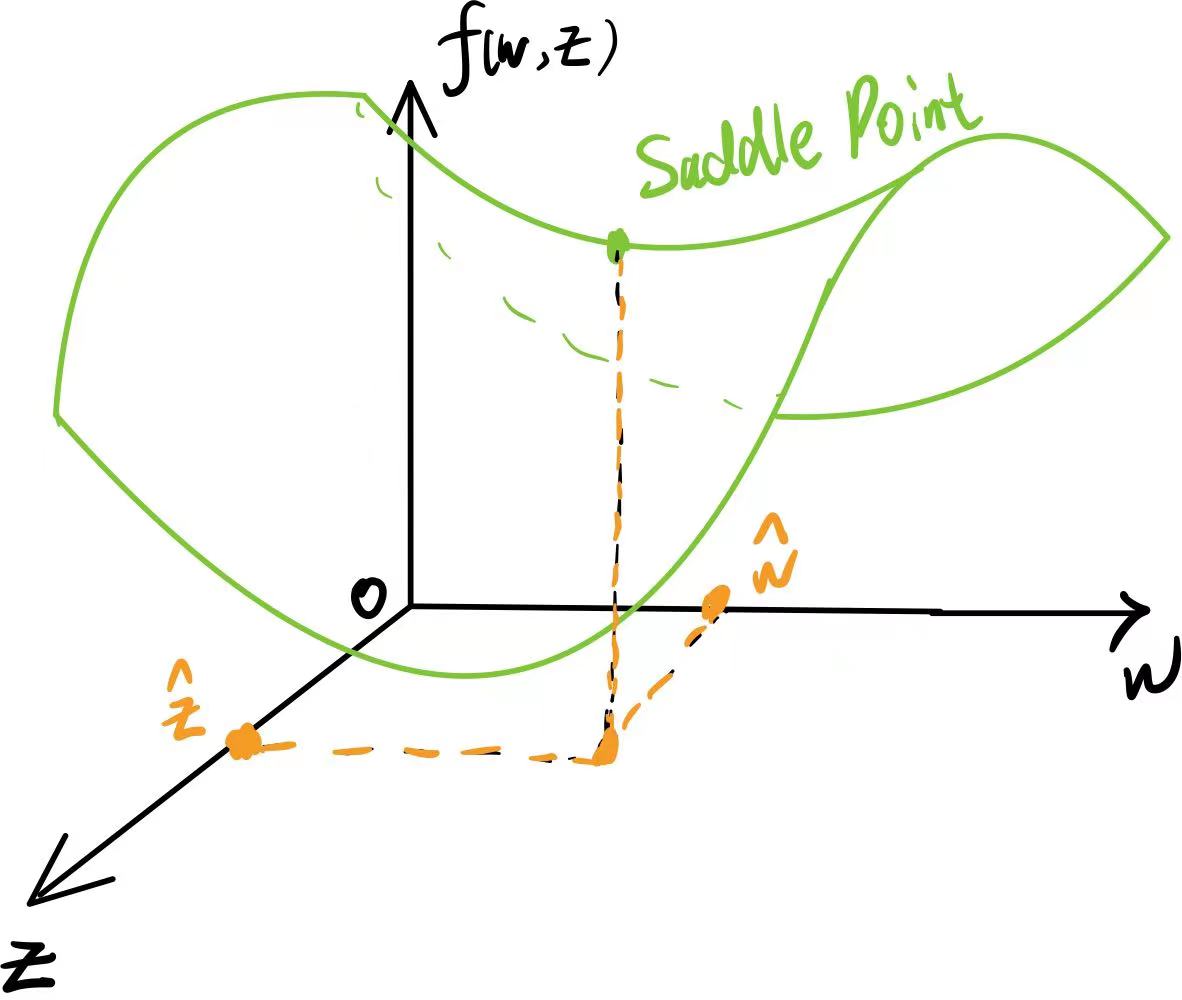 f(w,z)
Saddle Point
O
ŵ
w
ẑ
z